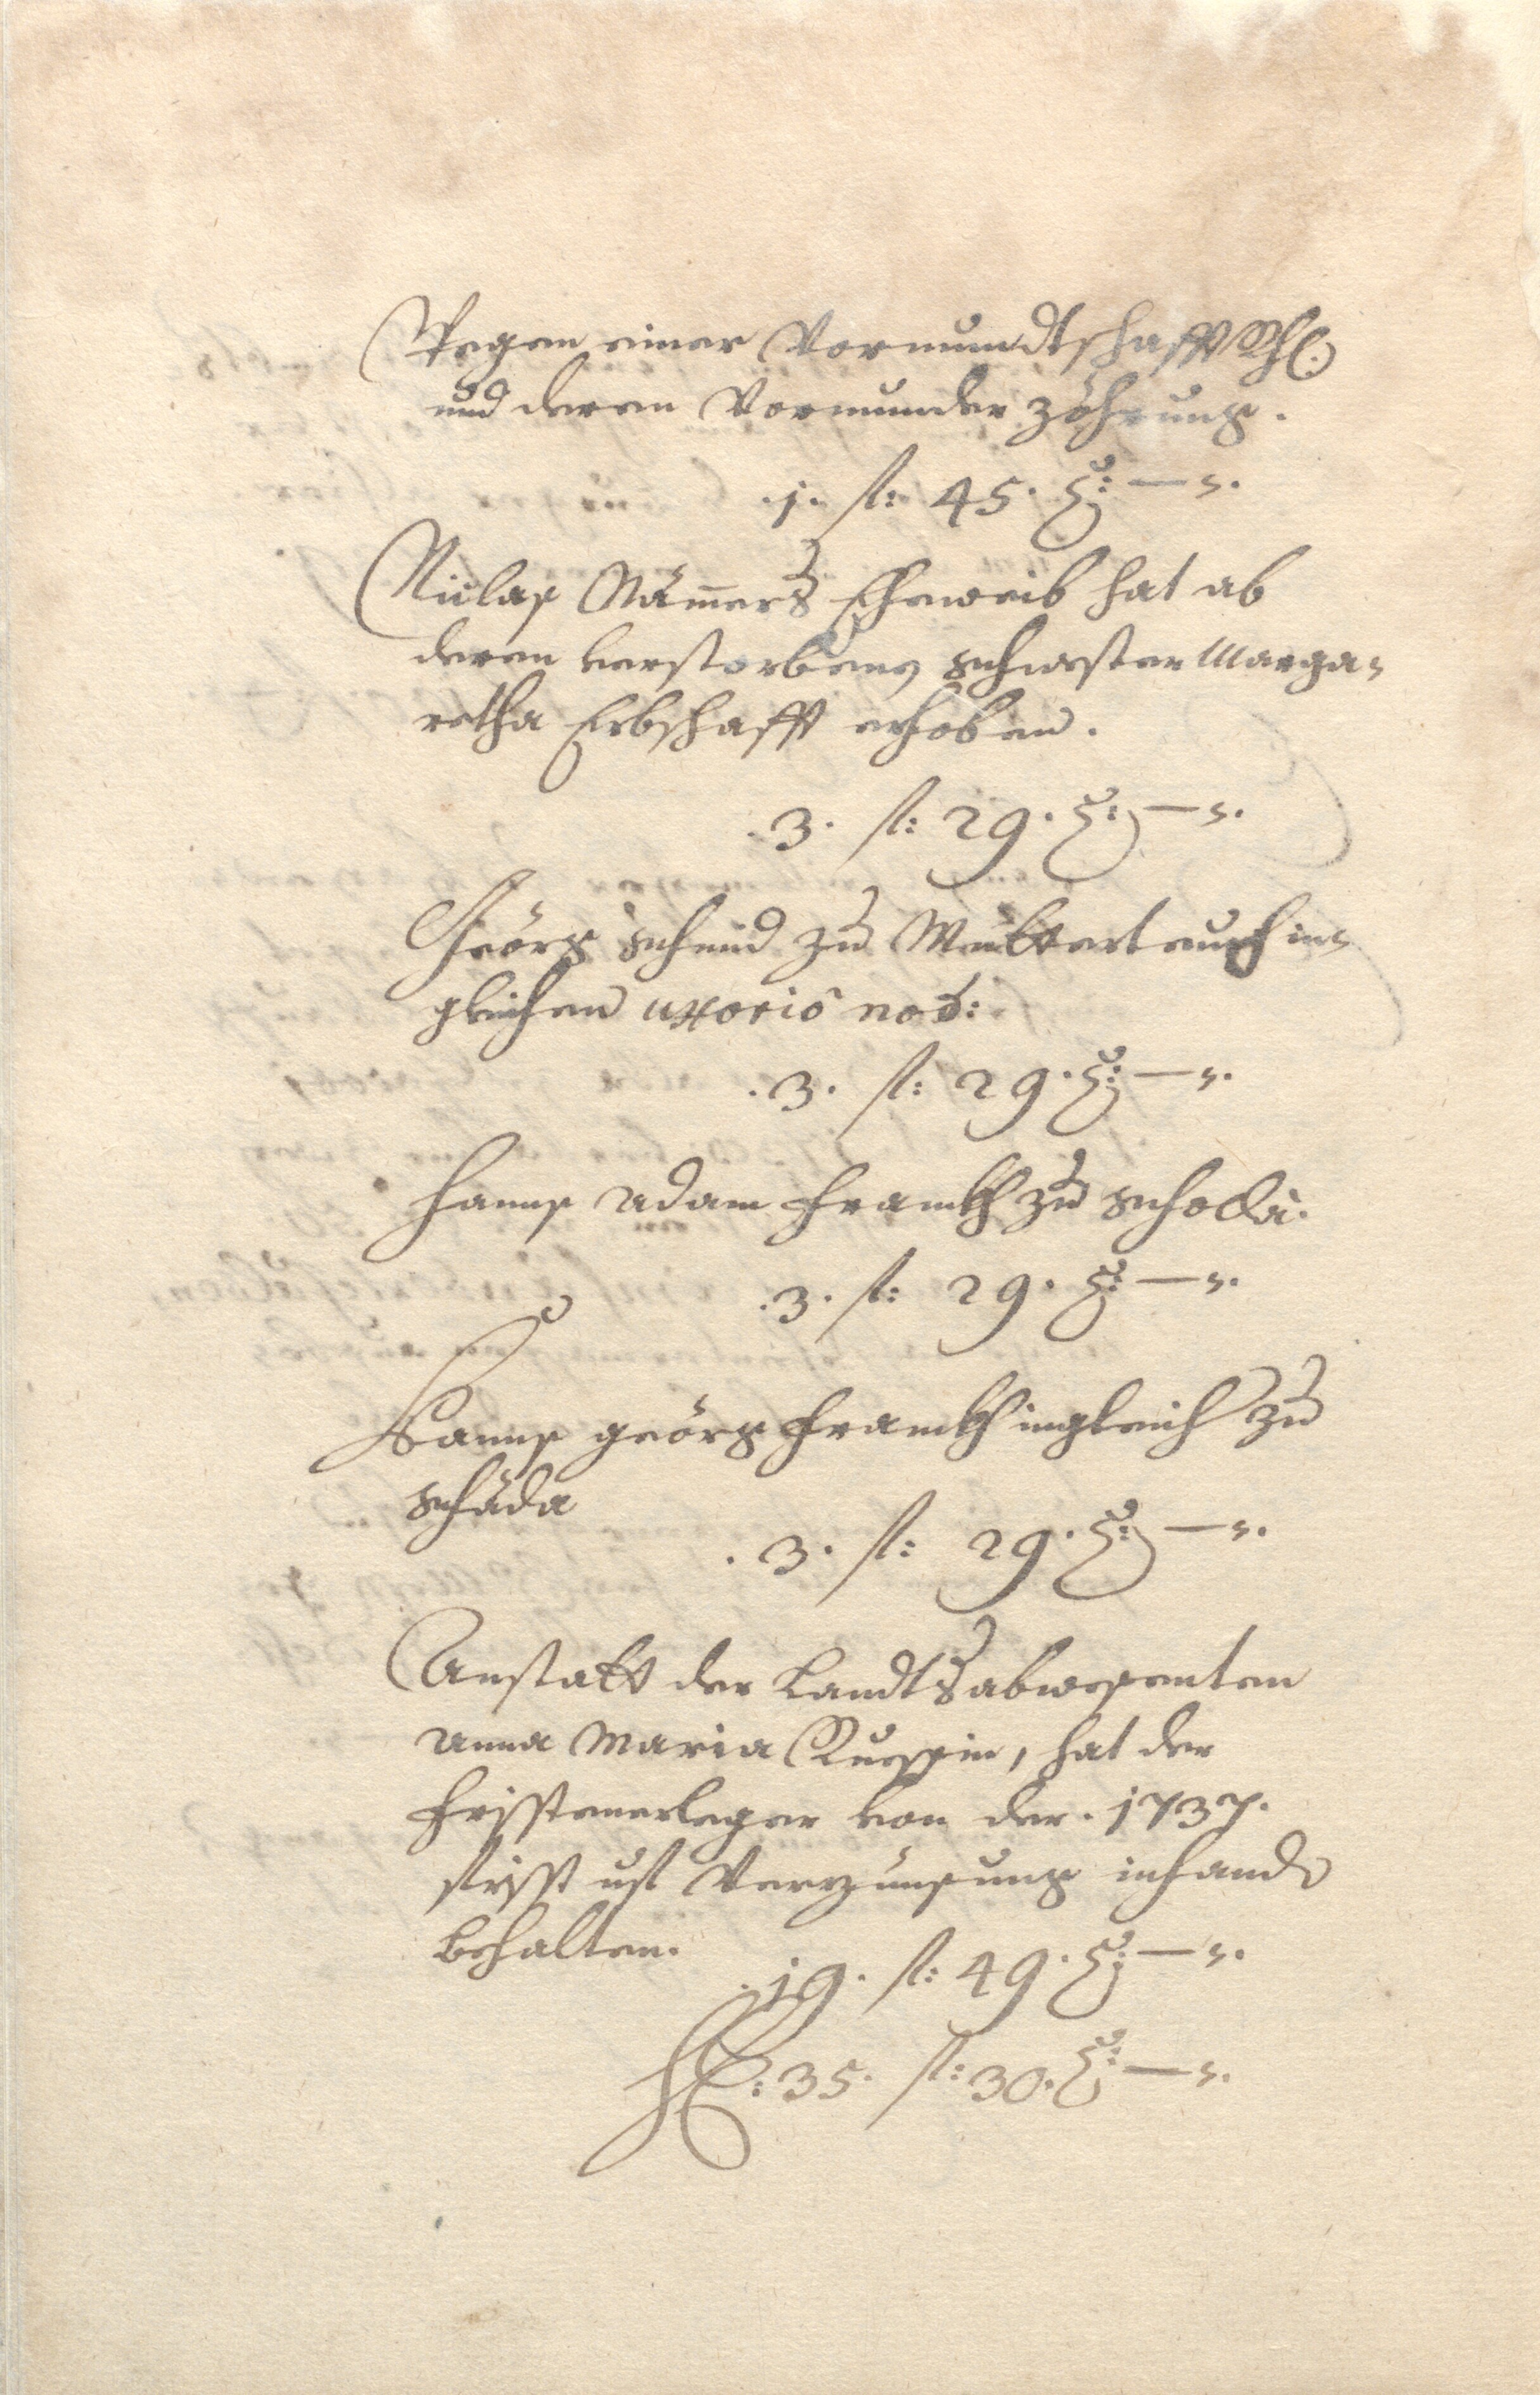 Wegen einer Vormundtschafft Rhg.
und deren Vormunder Zöhrung.
.1. fl: 45. xr: —.
Niclas Mämers Eheweib hat ab
deren verstorbenen schwester Marga-
retha Erbschafft erhoben.
.3. fl: 29. xr: —.
Geörg schmid zu auch in-
gleichen uxorio noe:
.3. fl: 29. xr: —.
Hanns Adam Frankh zu
.3. fl: 29. xr: —.
Hanns geörg Frankh ingleich zu
schäda
.3. fl: 29. xr: —.
Anstatt der Landtsabwesenten
Anna Maria Ruessin, hat der
Fristenerleger von der .1737.
frist uf Verzünsung inhand
behalten.
.19. fl: 49. xr: —.
35. fl: 30. xr: —.